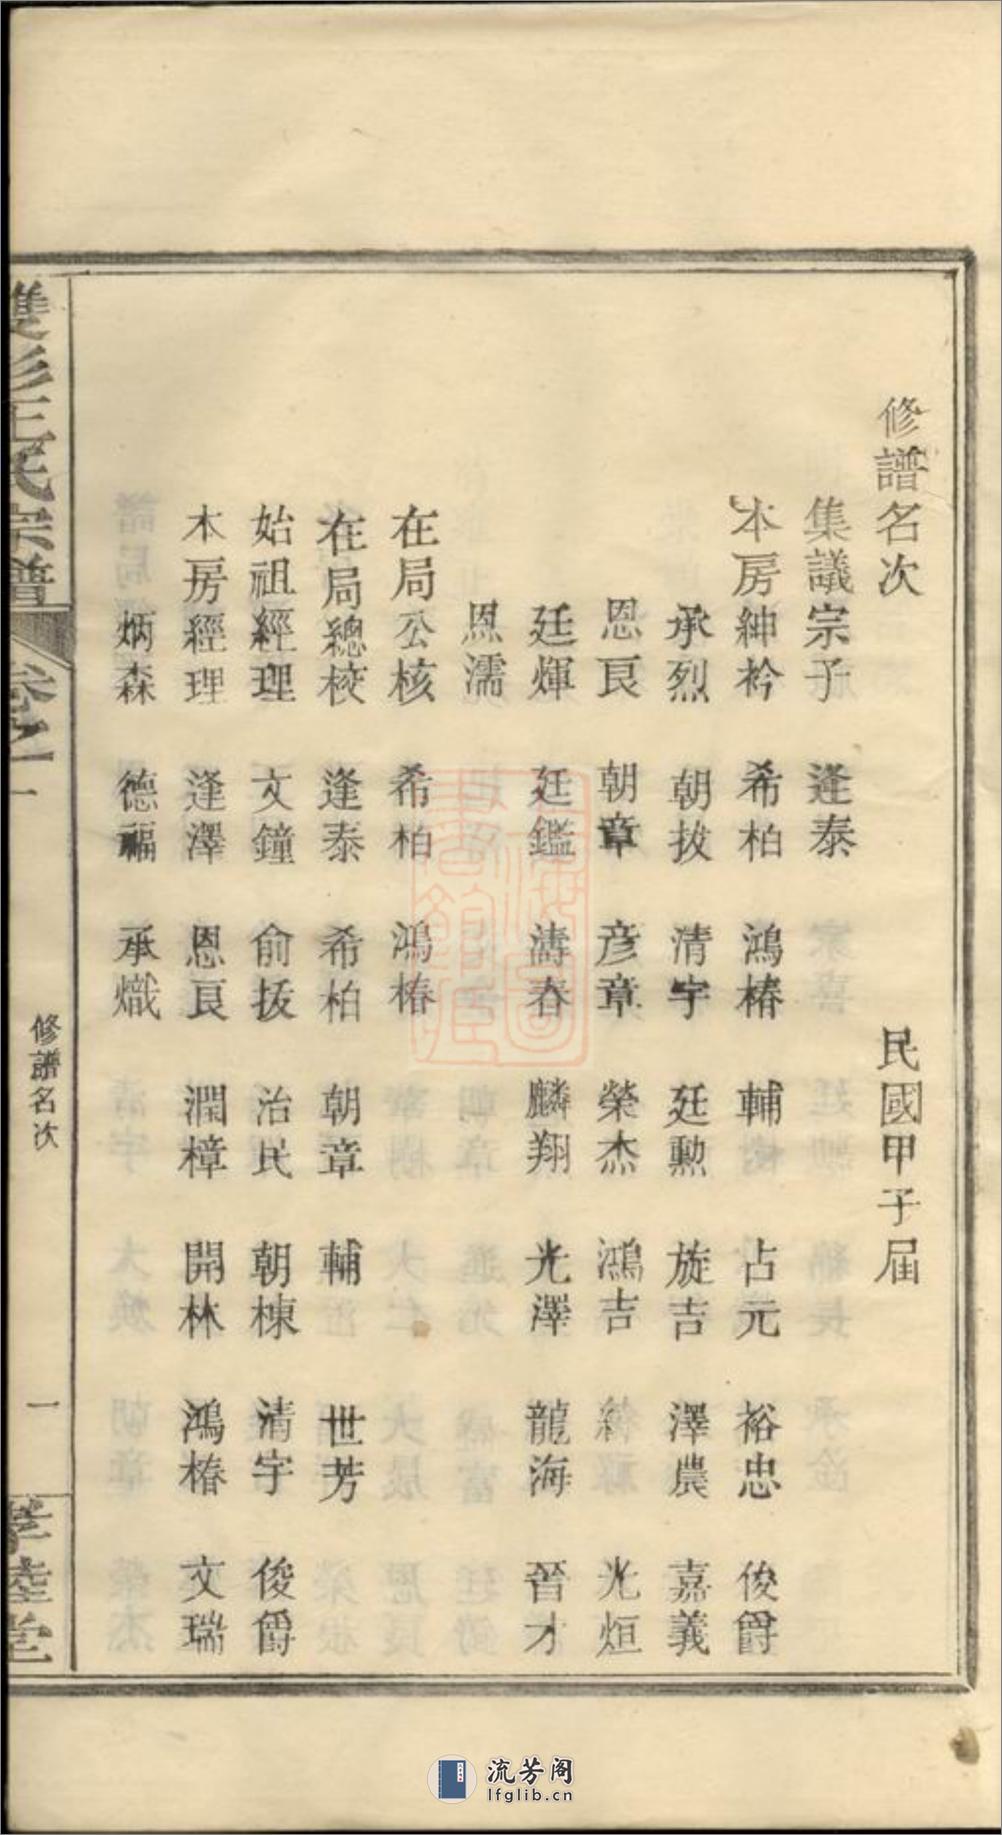 修譜名次 民國甲子屆
集議宗子 逢泰
本房紳衿 希柏 鴻椿 輔 占元 裕忠 俊爵
承烈 朝拔 清宇 廷勳 旋吉 澤農 嘉義
恩良 朝章 彦章 榮杰 鴻吉 光烜
廷煇 廷鑑 濤春 麟翔 光澤 龍海 晉才
恩濡
在局公核 希柏 鴻椿
在局總校 逢泰 希柏 朝章 輔 世芳
始祖經理 文鐘 俞拔 治民 朝棟 清宇 俊爵
本房經理 逢澤 恩良 潤樟 開林 鴻椿 文瑞
炳森 德福 承熾
雙杉王氏宗譜 卷之一 修譜名次 一 孝睦堂
流芳阁
lfglib.cn